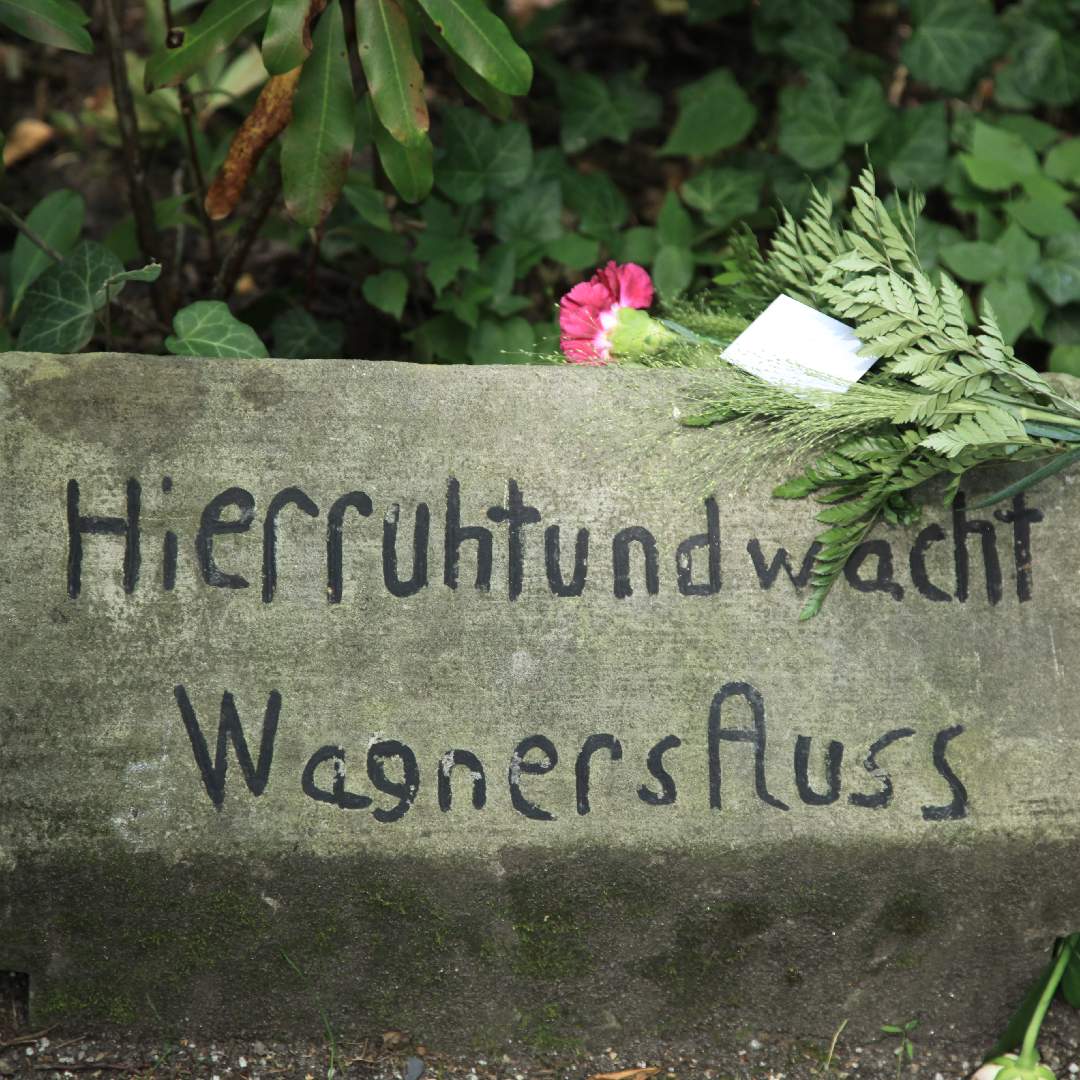 Hier ruht und wacht
Wagners Russ